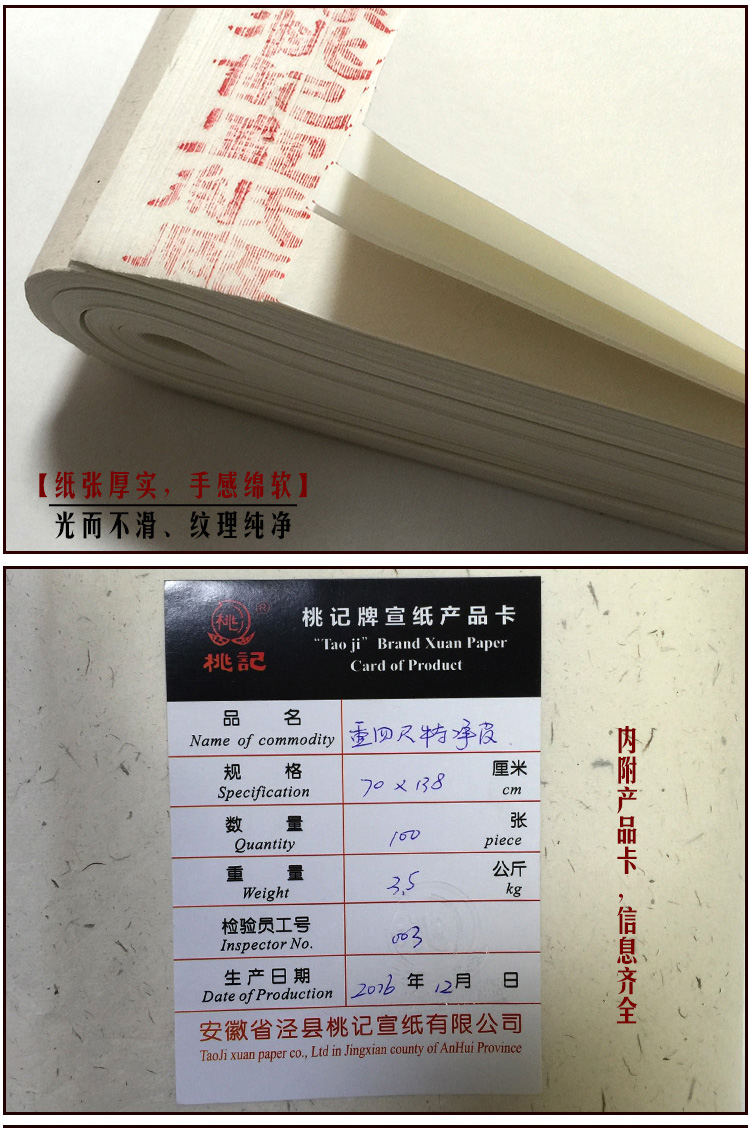 【纸张厚实，手感绵软】
光而不滑、纹理纯净
桃 ®
桃記
桃记牌宣纸产品卡
“Tao ji” Brand Xuan Paper
Card of Product
品 名
Name of commodity
重四尺特净皮
规 格
Specification
70 x 138
厘米
cm
数 量
Quantity
100
张
piece
重 量
Weight
3.5
公斤
kg
检验员工号
Inspector No.
003
生产日期
Date of Production
2016 年 12月 日
安徽省泾县桃记宣纸有限公司
TaoJi xuan paper co., Ltd in Jingxian county of AnHui Province
内附产品卡，信息齐全